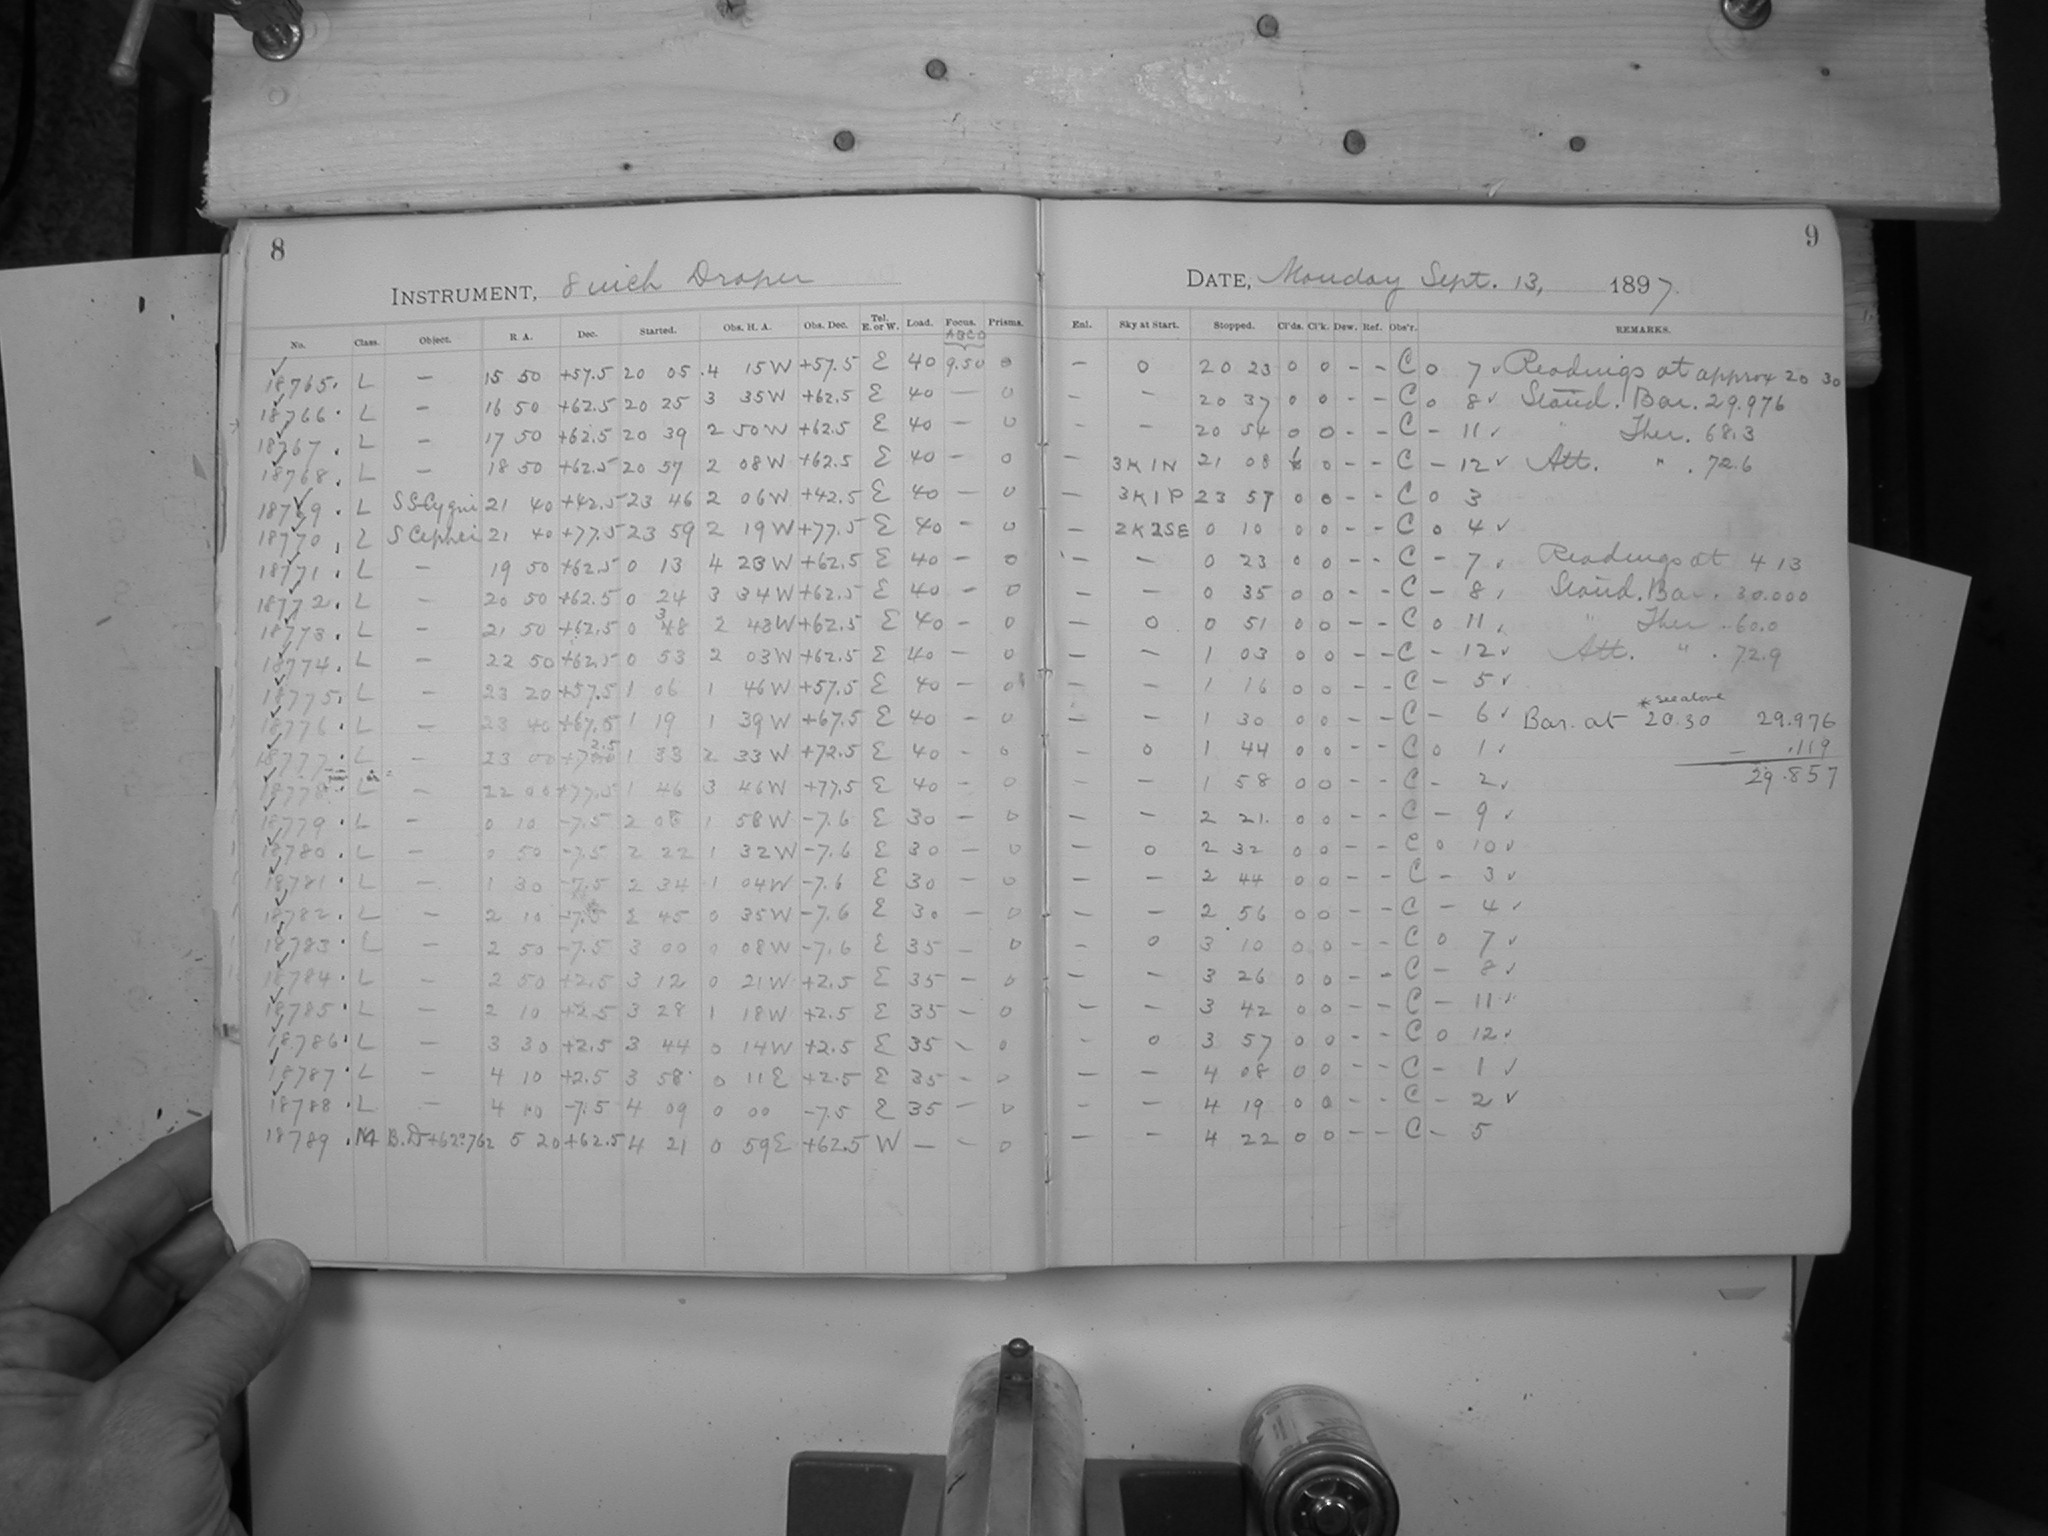 8
INSTRUMENT, 8 inch Draper
No. Class. Object. R. A. Dec. Started. Obs. H. A. Obs. Dec. Tel. E. or W. Load. Focus. Prisms.
ABCD
18765. L — 15 50 +57.5 20 05 4 15W +57.5 E 40 9.50 0
18766. L — 16 50 +62.5 20 25 3 35W +62.5 E 40 — 0
18767. L — 17 50 +62.5 20 39 2 50W +62.5 E 40 — 0
18768. L — 18 50 +62.5 20 57 2 08W +62.5 E 40 — 0
18769. L SS Cygni 21 40 +42.5 23 46 2 06W +42.5 E 40 — 0
18770. L S Cephei 21 40 +77.5 23 59 2 19W +77.5 E 40 — 0
18771. L — 19 50 +62.5 0 13 4 23W +62.5 E 40 — 0
18772. L — 20 50 +62.5 0 24 3 34W +62.5 E 40 — 0
18773. L — 21 50 +62.5 0 38 2 43W +62.5 E 40 — 0
18774. L — 22 50 +62.5 0 53 2 03W +62.5 E 40 — 0
18775. L — 23 20 +57.5 1 06 1 46W +57.5 E 40 — 0
18776. L — 23 40 +67.5 1 19 1 39W +67.5 E 40 — 0
18777. L — 23 00 +72.5 1 33 2 33W +72.5 E 40 — 0
18778. L — 22 00 +77.5 1 46 3 46W +77.5 E 40 — 0
18779. L — 0 10 -7.5 2 08 1 58W -7.6 E 30 — 0
18780. L — 0 50 -7.5 2 22 1 32W -7.6 E 30 — 0
18781. L — 1 30 -7.5 2 34 1 04W -7.6 E 30 — 0
18782. L — 2 10 -7.5 2 45 0 35W -7.6 E 30 — 0
18783. L — 2 50 -7.5 3 00 0 08W -7.6 E 35 — 0
18784. L — 2 50 +2.5 3 12 0 21W +2.5 E 35 — 0
18785. L — 2 10 +2.5 3 28 1 18W +2.5 E 35 — 0
18786. L — 3 30 +2.5 3 44 0 14W +2.5 E 35 — 0
18787. L — 4 10 +2.5 3 58 0 11E +2.5 E 35 — 0
18788. L — 4 10 -7.5 4 09 0 00 -7.5 E 35 — 0
18789. M B.D+62°762 5 20 +62.5 4 21 0 59E +62.5 W — — 0
9
DATE, Monday Sept. 13, 1897.
Enl. Sky at Start. Stopped. Cl'ds. Cl'k. Dew. Ref. Obs'r. REMARKS.
— 0 20 23 0 0 - - C 0 7 ✓ Readings at approx 20 30
— — 20 37 0 0 - - C 0 8 ✓ Stand. Bar. 29.976
— — 20 54 0 0 - - C — 11 ✓ " Ther. 68.3
— 3K1N 21 08 0 - - C — 12 ✓ Att. " . 72.6
— 3K1P 23 57 0 0 - - C 0 3
— 2K2SE 0 10 0 0 - - C 0 4 ✓
— — 0 23 0 0 - - C — 7 ✓ Readings at 4 13
— — 0 35 0 0 - - C — 8 ✓ Stand. Bar. 30.000
— 0 0 51 0 0 - - C 0 11 ✓ " Ther. 60.0
— — 1 03 0 0 - - C — 12 ✓ Att. " . 72.9
— — 1 16 0 0 - - C — 5 ✓
* see above
— — 1 30 0 0 - - C — 6 ✓ Bar. at 20.30 29.976
— 0 1 44 0 0 - - C 0 1 ✓ — .119
— — 1 58 0 0 - - C — 2 ✓ 29.857
— — 2 21 0 0 - - C — 9 ✓
— 0 2 32 0 0 - - C 0 10 ✓
— — 2 44 0 0 - - C — 3 ✓
— — 2 56 0 0 - - C — 4 ✓
— 0 3 10 0 0 - - C 0 7 ✓
— — 3 26 0 0 - - C — 8 ✓
— — 3 42 0 0 - - C — 11 ✓
— 0 3 57 0 0 - - C 0 12 ✓
— — 4 08 0 0 - - C — 1 ✓
— — 4 19 0 0 - - C — 2 ✓
— — 4 22 0 0 - - C — 5